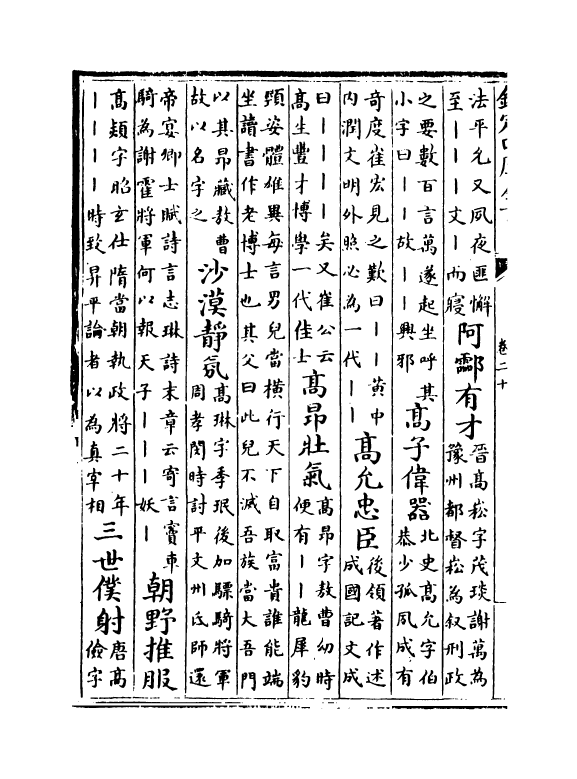 卷二十
法平允又夙夜匪懈
至丨丨丨丈丨而寢
阿酃有才
晉髙崧字茂琰謝萬為
豫州都督崧為叙刑政
之要數百言萬遂起坐呼其
小字曰丨丨故丨丨興邪
髙子偉器
北史髙允字伯
恭少孤夙成有
奇度崔宏見之歎曰丨丨黄中
内潤文明外照必為一代丨丨
髙允忠臣
後領著作述
成國記文成
曰丨丨丨丨矣又崔公云
髙生豐才博學一代佳士
髙昂壯氣
髙昂字敖曹幼時
便有丨丨龍犀豹
頸姿體雄異每言男兒當横行天下自取富貴誰能端
坐讀書作老博士也其父曰此兒不滅吾族當大吾門
以其昂藏敖曹
故以名字之
沙漠靜氛
髙琳字季珉後加驃騎將軍
周孝閔時討平文州氐師還
帝宴卿士賦詩言志琳詩末章云寄言竇車
騎為謝霍將軍何以報天子丨丨丨妖丨
朝野推服
髙熲字昭玄仕隋當朝執政將二十年
丨丨丨丨時致昇平論者以為真宰相
三世僕射
唐髙
儉字